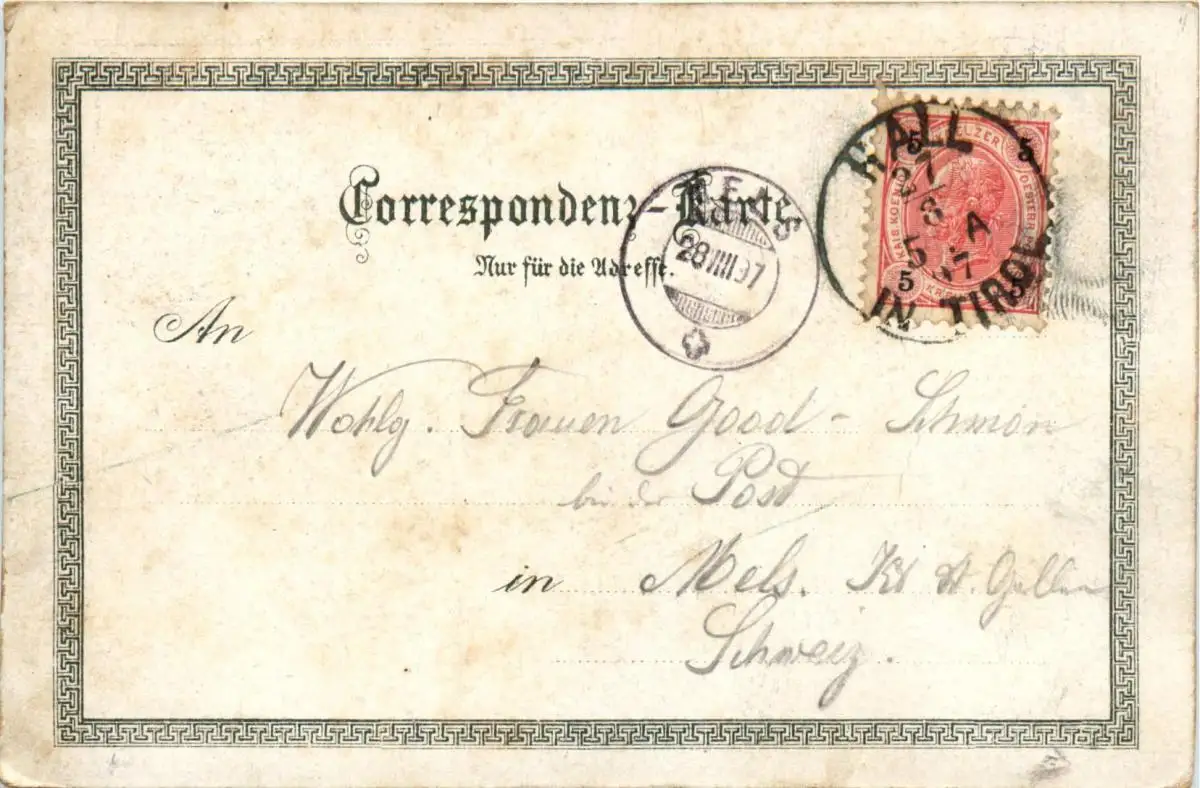 Correspondenz-Karte.
Nur für die Adresse.
HALL
27
8
5 A
97
IN TIROL
5 5
KREUZER
5 5
MELS
28 VIII 97
An
Wohlg. Frauen Good - Schmon
bei der Post
in Mels. Kt St. Gallen
Schweiz.